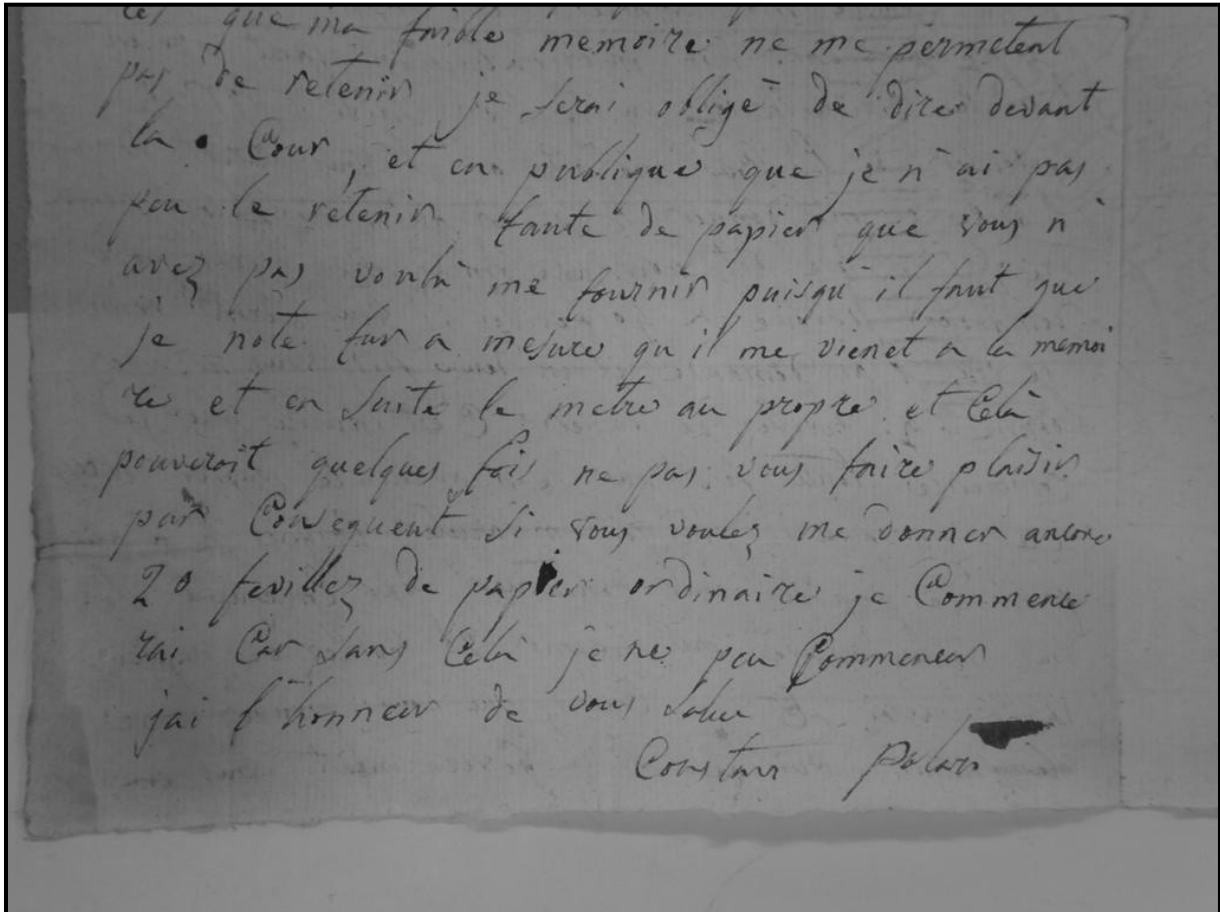 que ma faible memoire ne me permetent
pas de retenir je serai obligé de dire devant
la Cour, et en publique que je n'ai pas
peu le retenir faute de papier que vous n'
avez pas voulu me fournir puisqu'il faut que
je note fur a mesure qu'il me vienet a la memoi
re et en suite le metre au propre et Celà
pouveroit quelques fois ne pas vous faire plaisir
par Consequent si vous voulez me donner ancore
20 feuillez de papier ordinaire je Commence
rai Car sans Celà je ne peu Commencer
jai l'honneur de vous saluer
Constant